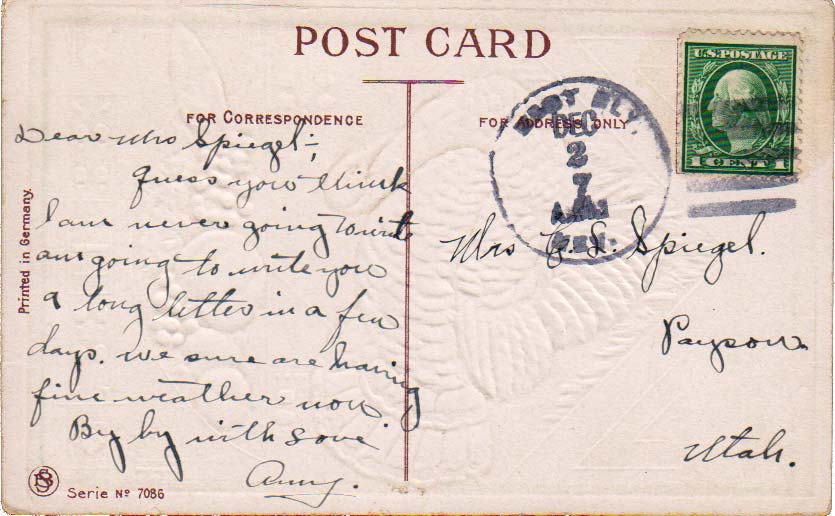 POST CARD
FOR CORRESPONDENCE
FOR ADDRESS ONLY
U.S. POSTAGE
1 CENT 1
EAST ELY,
DEC
2
7
NEV.
Dear Mrs Spiegel:-
Guess you think
I am never going to write
am going to write you
a long letter in a few
days. We sure are having
fine weather now
By by with Love
Mrs C. L. Spiegel.
Payson
Utah.
Printed in Germany.
Serie No 7086